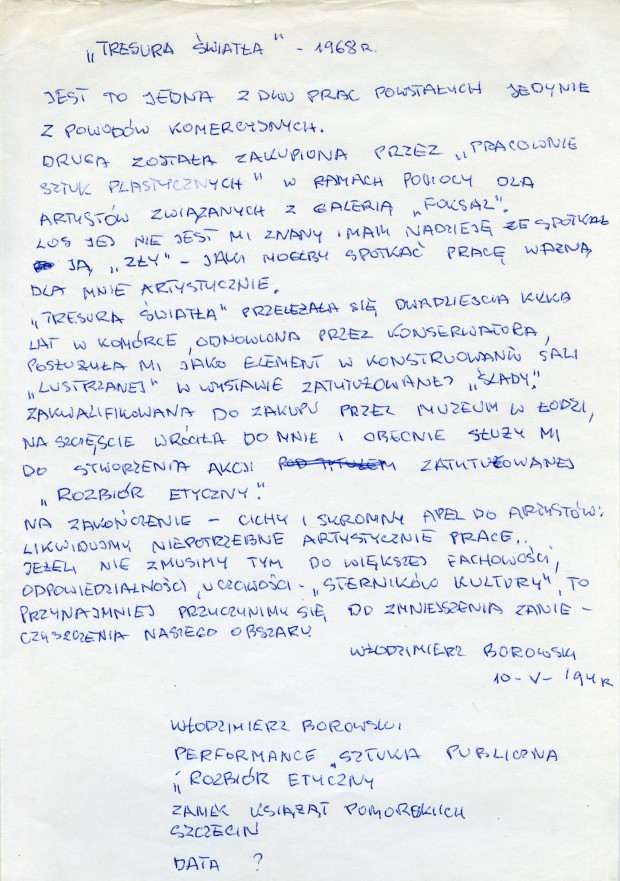 „TRESURA ŚWIATŁA" - 1968 R.
JEST TO JEDNA Z DWU PRAC POWSTAŁYCH JEDYNIE
Z POWODÓW KOMERCYJNYCH.
DRUGA ZOSTAŁA ZAKUPIONA PRZEZ „PRACOWNIE
SZTUK PLASTYCZNYCH" W RAMACH POMOCY DLA
ARTYSTÓW ZWIĄZANYCH Z GALERIĄ „FOKSAL".
LOS JEJ NIE JEST MI ZNANY I MAM NADZIEJĘ ŻE SPOTKAŁ
JĄ „ZŁY" - JAKI MÓGŁBY SPOTKAĆ PRACĘ WAŻNĄ
DLA MNIE ARTYSTYCZNIE.
„TRESURA ŚWIATŁA" PRZELEŻAŁA SIĘ DWADZIEŚCIA KILKA
LAT W KOMÓRCE, ODNOWIONA PRZEZ KONSERWATORA,
POSŁUŻYŁA MI JAKO ELEMENT W KONSTRUOWANIU SALI
„LUSTRZANEJ" W WYSTAWIE ZATYTUŁOWANEJ „ŚLADY".
ZAKWALIFIKOWANA DO ZAKUPU PRZEZ MUZEUM W ŁODZI,
NA SZCZĘŚCIE WRÓCIŁA DO MNIE I OBECNIE SŁUŻY MI
DO STWORZENIA AKCJI POD TYTUŁEM ZATYTUŁOWANEJ
„ROZBIÓR ETYCZNY".
NA ZAKOŃCZENIE - CICHY I SKROMNY APEL DO ARTYSTÓW:
LIKWIDUJMY NIEPOTRZEBNE ARTYSTYCZNIE PRACE..
JEŻELI NIE ZMUSIMY TYM DO WIĘKSZEJ FACHOWOŚCI,
ODPOWIEDZIALNOŚCI, UCZCIWOŚCI - „STERNIKÓW KULTURY", TO
PRZYNAJMNIEJ PRZYCZYNIMY SIĘ DO ZMNIEJSZENIA ZANIE-
CZYSZCZENIA NASZEGO OBSZARU
WŁODZIMIERZ BOROWSKI
10-V-'94 R
WŁODZIMIERZ BOROWSKI
PERFORMANCE „SZTUKA PUBLICZNA
„ROZBIÓR ETYCZNY
ZAMEK KSIĄŻĄT POMORSKICH
SZCZECIN
DATA ?